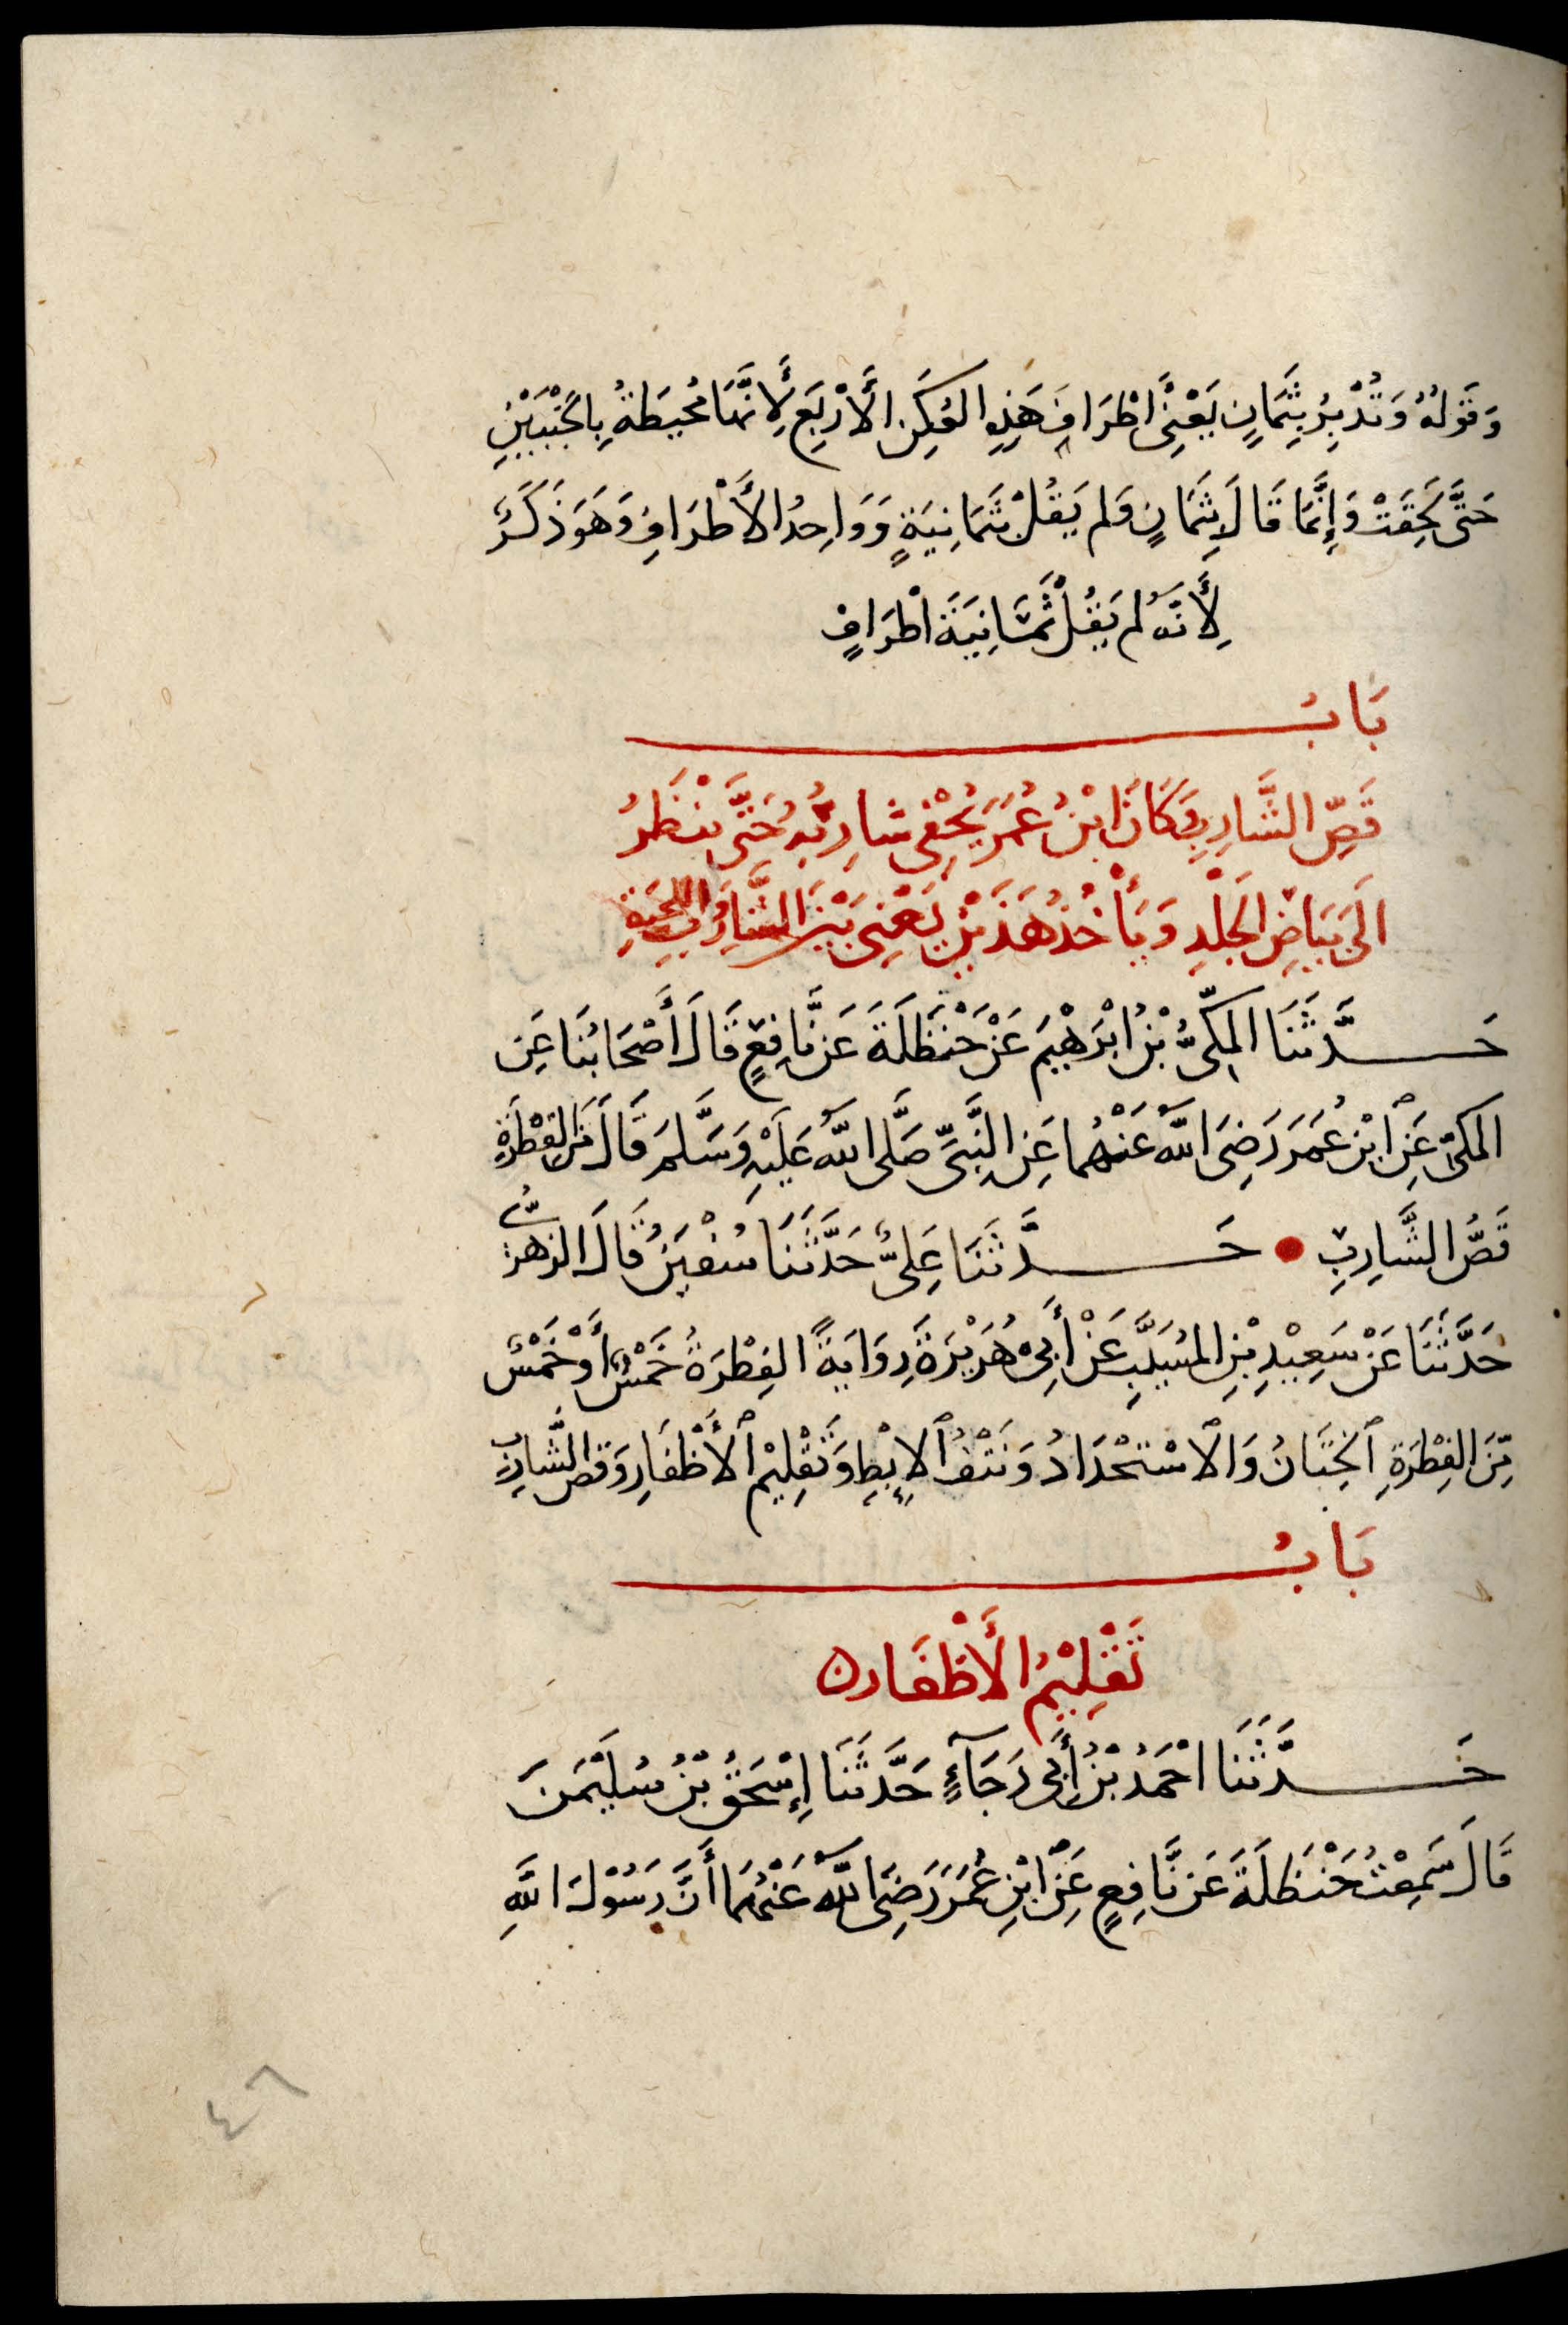 وَقَوْلُهُ وَتُدْبِرُ بِثَمَانٍ يَعْنِي اَطْرَافَ هَذِهِ العُكَنِ الأَرْبَعِ لِأَنَّهَا مُحِيطَةٌ بِالجَنْبَيْنِ
حَتَّى لَحِقَتْ وَإِنَّمَا قَالَ بِثَمَانٍ وَلَم يَقُلْ بثَمَانِيَةٍ وَوَاحِدُ الأَطْرَافِ وَهُوَ ذَكَرٌ
لِأَنَّهُ لم يَقُلْ ثَمَانِيَةَ اَطْرَافٍ
بَابُ
قَصِّ الشَّارِبِ وَكَانَ ابْنُ عُمَرَ يُحْفِي شارِبَهُ حَتَّى يَنْظَرُ
الَى بَيَاضِ الجَلْدِ وَيَأْخُذُ هَذَيْنِ يَعْنِي بَيْنَ الشَّارِبِ وَاللِّحْيَةِ
حَدَّثَنَا المَكِّيُّ بْنُ ابْرَهِيْمَ عَنْ حَنْظَلَةَ عَن نَّافِعٍ قَالَ أَصْحَابُنَا عَنِ
المكىّ عَنِ ابْنِ عُمَرَ رَضِيَ اللهُ عَنْهُما عَنِ النَّبِيِّ صَلَّى اللهُ عَلَيْهِ وَسَلَّمَ قَالَ مِنَ الفِطْرَةِ
قَصُّ الشَّارِبِ • حَدَّثَنَا عَلِىٌّ حَدَّثَنَا سُفْيَنُ قَالَ الزهرىُّ
حَدَّثَنَا عَنْ سَعِيْدِ بْنِ المُسَيِّبِ عَنْ أَبِىْ هُرَيْرَةَ رِوَايَةً الفِطْرَةُ خَمْسٌ أَوْ خَمْسٌ
مِّنَ الفِطْرَةِ الخِتَانُ وَالاسْتحْدَادُ وَنَتْفُ الإِبْطِ وَتَقْلِيْم الأَظْفَارِ وَقصُّ الشَّارِبِ
بَابُ
تَقْلِيْمُ الأَظْفَار ه
حَدَّثَنَا احْمَدُ بْنُ أَبِى رَجَآءٍ حَدَّثَنَا إِسْحَقُ بْنُ سُلَيْمَنَ
قَالَ سَمِعْتُ حَنْظَلَةَ عَن نَّافِعٍ عَنِ ابْنِ عُمَرَ رَضِىَ اللهُ عَنْهُمَا أَنَّ رَسُوْلَ اللهِ
٤٦